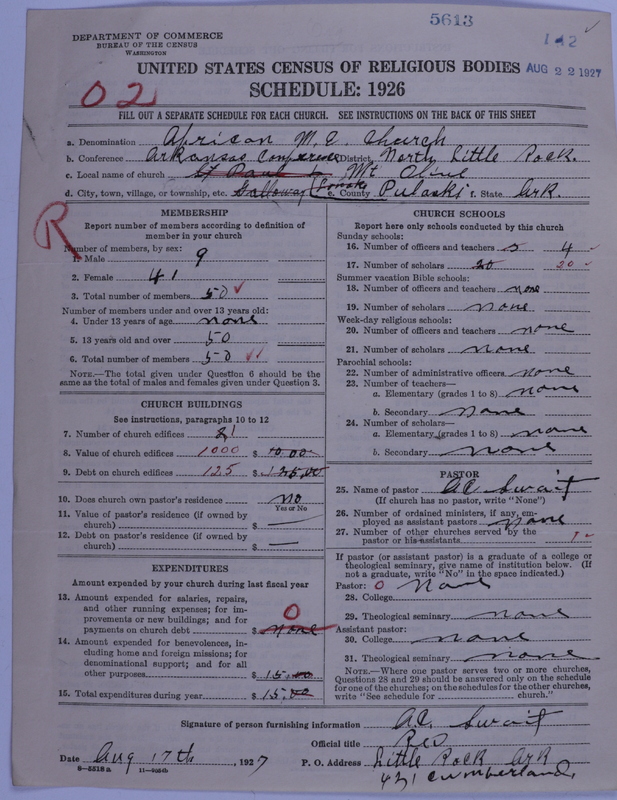 5613
DEPARTMENT OF COMMERCE
BUREAU OF THE CENSUS
WASHINGTON
UNITED STATES CENSUS OF RELIGIOUS BODIES
AUG 22 1927
SCHEDULE: 1926
02
FILL OUT A SEPARATE SCHEDULE FOR EACH CHURCH. SEE INSTRUCTIONS ON THE BACK OF THIS SHEET
a. Denomination African M. E. Church
b. Conference Arkansas Conference District North Little Rock.
c. Local name of church St Paul Mt Olive
d. City, town, village, or township, etc. Galloway Lonoke e. County Pulaski f. State Ark.
R
MEMBERSHIP
Report number of members according to definition of member in your church
Number of members, by sex:
1. Male 9
2. Female 41
3. Total number of members 50
Number of members under and over 13 years old:
4. Under 13 years of age none
5. 13 years old and over 50
6. Total number of members 50
NOTE.—The total given under Question 6 should be the same as the total of males and females given under Question 3.
CHURCH BUILDINGS
See instructions, paragraphs 10 to 12
7. Number of church edifices 1
8. Value of church edifices 1000 $ 10.00
9. Debt on church edifices 125 $ 125.00
10. Does church own pastor's residence no
Yes or No
11. Value of pastor's residence (if owned by church) $ —
12. Debt on pastor's residence (if owned by church) $ —
EXPENDITURES
Amount expended by your church during last fiscal year
13. Amount expended for salaries, repairs, and other running expenses; for improvements or new buildings; and for payments on church debt $ none 0
14. Amount expended for benevolences, including home and foreign missions; for denominational support; and for all other purposes $ 15.00
15. Total expenditures during year $ 15.00
CHURCH SCHOOLS
Report here only schools conducted by this church
Sunday schools:
16. Number of officers and teachers 5 4
17. Number of scholars 20 20
Summer vacation Bible schools:
18. Number of officers and teachers none
19. Number of scholars none
Week-day religious schools:
20. Number of officers and teachers none
21. Number of scholars none
Parochial schools:
22. Number of administrative officers none
23. Number of teachers—
a. Elementary (grades 1 to 8) none
b. Secondary none
24. Number of scholars—
a. Elementary (grades 1 to 8) none
b. Secondary none
PASTOR
25. Name of pastor A.C. Swait
(If church has no pastor, write "None")
26. Number of ordained ministers, if any, employed as assistant pastors none
27. Number of other churches served by the pastor or his assistants
If pastor (or assistant pastor) is a graduate of a college or theological seminary, give name of institution below. (If not a graduate, write "No" in the space indicated.)
Pastor: 0 None
28. College
29. Theological seminary none
Assistant pastor:
30. College none
31. Theological seminary none
NOTE.—Where one pastor serves two or more churches, Questions 28 and 29 should be answered only on the schedule for one of the churches; on the schedules for the other churches, write "See schedule for church."
Signature of person furnishing information A.C. Swait
Official title
Date Aug 17th, 1927 P. O. Address Little Rock Ark
8—5518a
421 Cumberland,